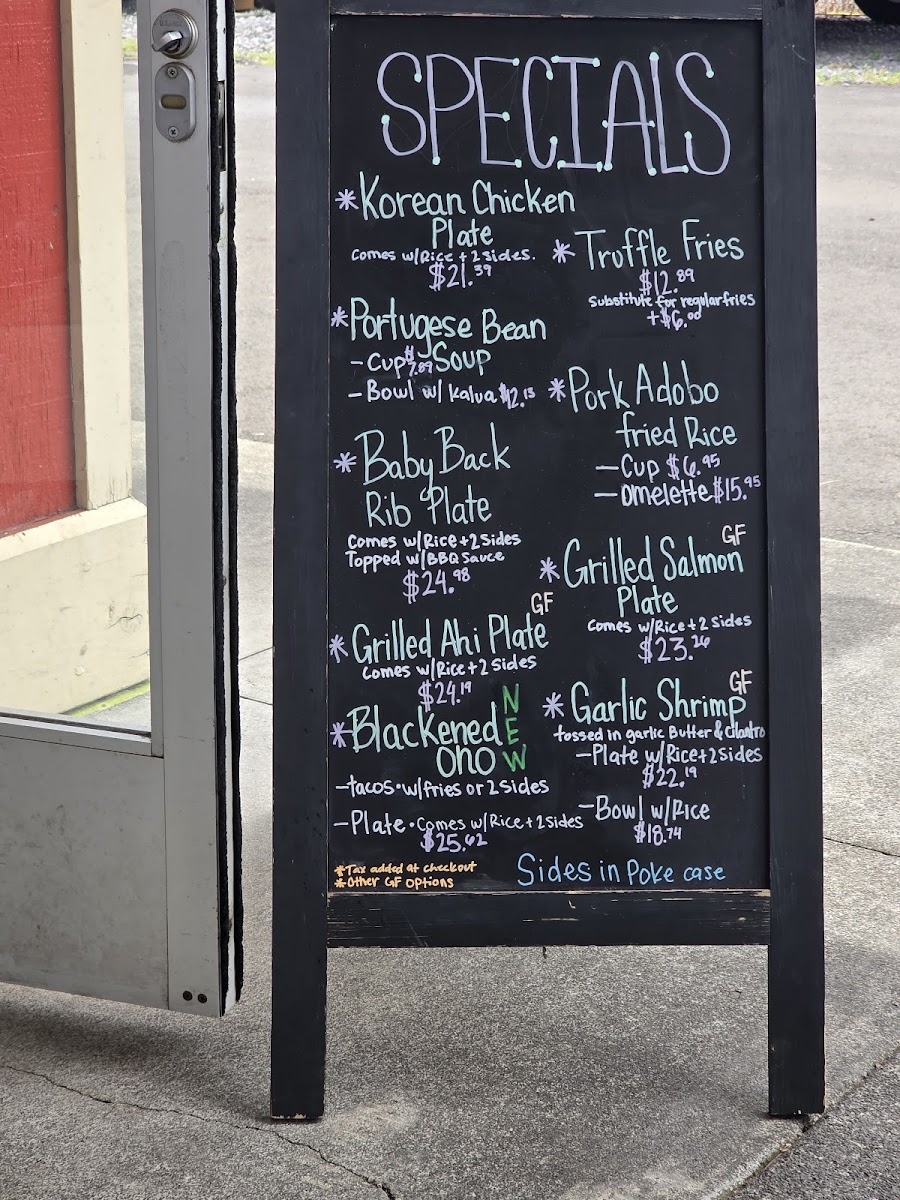 SPECIALS
*Korean Chicken
Plate
Comes w/Rice + 2 Sides.
$21.39
*Portugese Bean
Soup
- Cup $7.89
- Bowl w/ Kalua $12.13
*Baby Back
Rib Plate
Comes w/Rice + 2 Sides
Topped w/BBQ Sauce
$24.98
GF
*Grilled Ahi Plate
Comes w/Rice + 2 Sides
$24.19
*Blackened
Ono
NEW
- tacos • w/fries or 2 sides
- Plate • Comes w/Rice + 2 Sides
$25.62
*Tax added at checkout
*Other GF options
*Truffle Fries
$12.89
Substitute for regular fries
+$6.00
*Pork Adobo
fried Rice
- Cup $6.95
- Omelette $15.95
GF
*Grilled Salmon
Plate
Comes w/Rice + 2 Sides
$23.26
GF
*Garlic Shrimp
tossed in garlic Butter & cilantro
- Plate w/Rice + 2 Sides
$22.19
- Bowl w/Rice
$18.74
Sides in Poke case